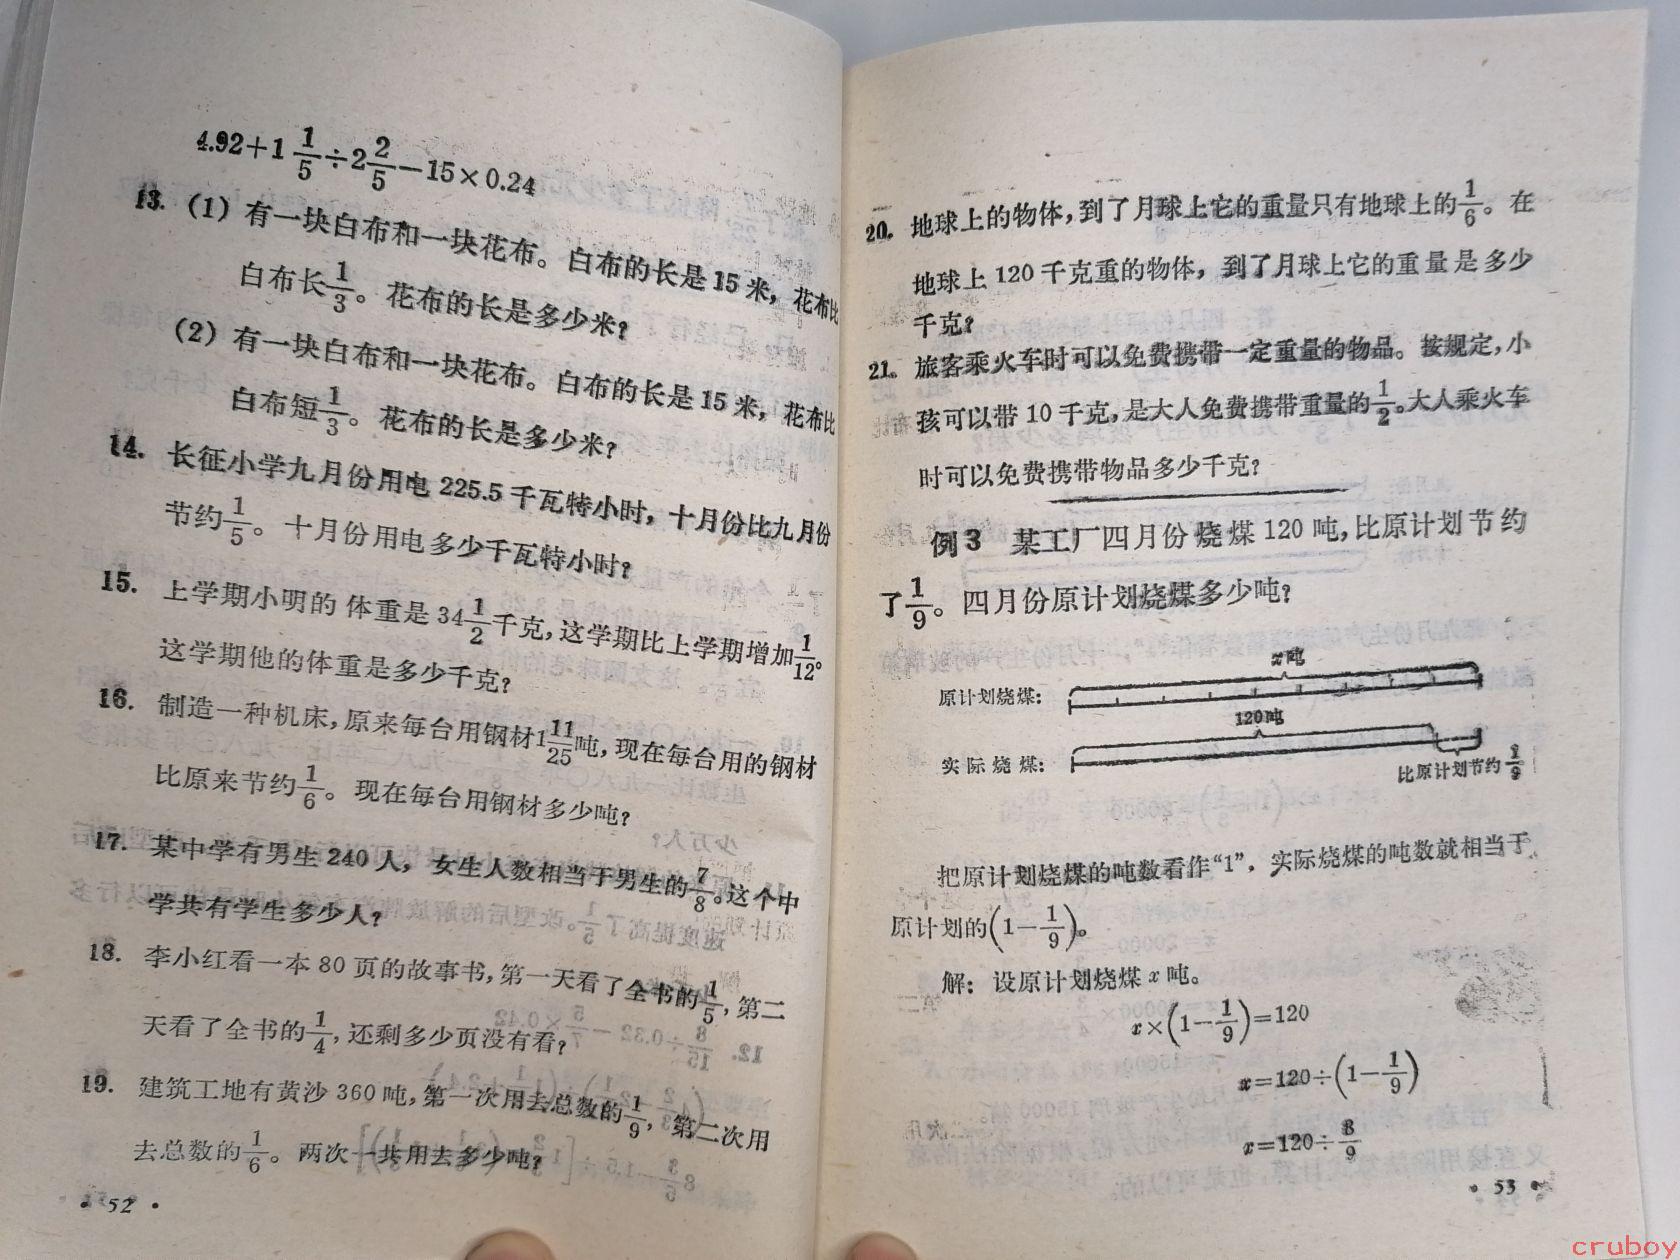 4.92+1 1/5÷2 2/5−15×0.24
13. (1) 有一块白布和一块花布。白布的长是15米，花布比
白布长1/3。花布的长是多少米？
(2) 有一块白布和一块花布。白布的长是15米，花布比
白布短1/3。花布的长是多少米？
14. 长征小学九月份用电225.5千瓦特小时，十月份比九月份
节约1/5。十月份用电多少千瓦特小时？
15. 上学期小明的体重是34 1/2千克，这学期比上学期增加1/12。
这学期他的体重是多少千克？
16. 制造一种机床，原来每台用钢材1 11/25吨，现在每台用的钢材
比原来节约1/6。现在每台用钢材多少吨？
17. 某中学有男生240人，女生人数相当于男生的7/8。这个中
学共有学生多少人？
18. 李小红看一本80页的故事书，第一天看了全书的1/5，第二
天看了全书的1/4，还剩多少页没有看？
19. 建筑工地有黄沙360吨，第一次用去总数的1/9，第二次用
去总数的1/6。两次一共用去多少吨？
• 52 •
20. 地球上的物体，到了月球上它的重量只有地球上的1/6。在
地球上120千克重的物体，到了月球上它的重量是多少
千克？
21. 旅客乘火车时可以免费携带一定重量的物品。按规定，小
孩可以带10千克，是大人免费携带重量的1/2。大人乘火车
时可以免费携带物品多少千克？
例3 某工厂四月份烧煤120吨，比原计划节约
了1/9。四月份原计划烧煤多少吨？
x吨
原计划烧煤：
120吨
实际烧煤：
比原计划节约1/9
把原计划烧煤的吨数看作“1”，实际烧煤的吨数就相当于
原计划的(1−1/9)。
解：设原计划烧煤x吨。
x×(1−1/9)=120
x=120÷(1−1/9)
x=120÷8/9
• 53 •
cruboy